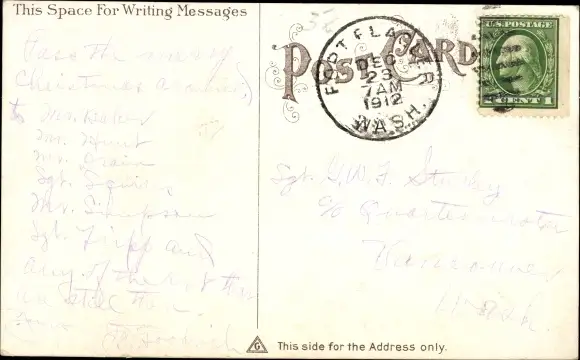 This Space For Writing Messages
POST CARD
FORT FLAGLER
DEC
23
7 AM
1912
WASH.
U.S. POSTAGE
1 CENT 1
Pass the merry
Christmas around
to Mr. Baker
Mr. Hunt
Mr. Crain
Sgt. Squires
Mr. Simpson
Sgt. Fipp and
any of the rest that
are still there
Sgt. G.W.F. Stukey
c/o Quartermaster
Vancouver
Wash.
G
This side for the Address only.